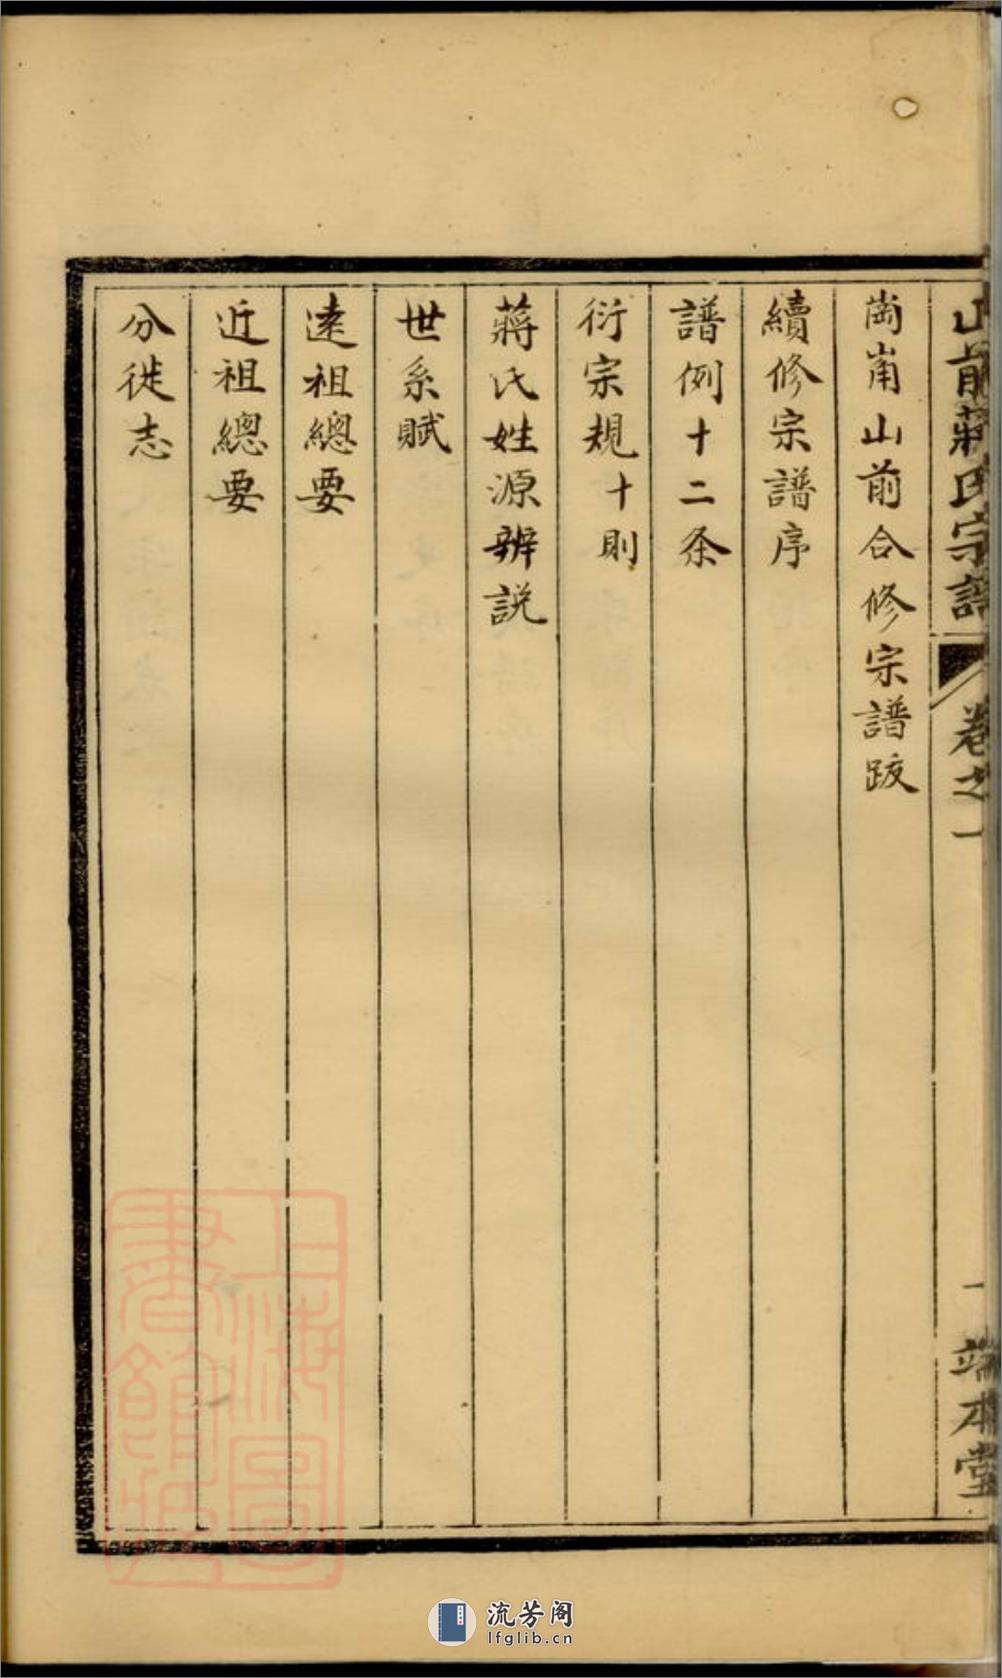 山前蔣氏宗譜 卷之一 一 端本堂
崗𡶴山前合修宗譜跋
續修宗譜序
譜例十二条
衍宗規十則
蔣氏姓源辨説
世系賦
遠祖總要
近祖總要
分徙志
上海圖書館藏
流芳阁
lfglib.cn